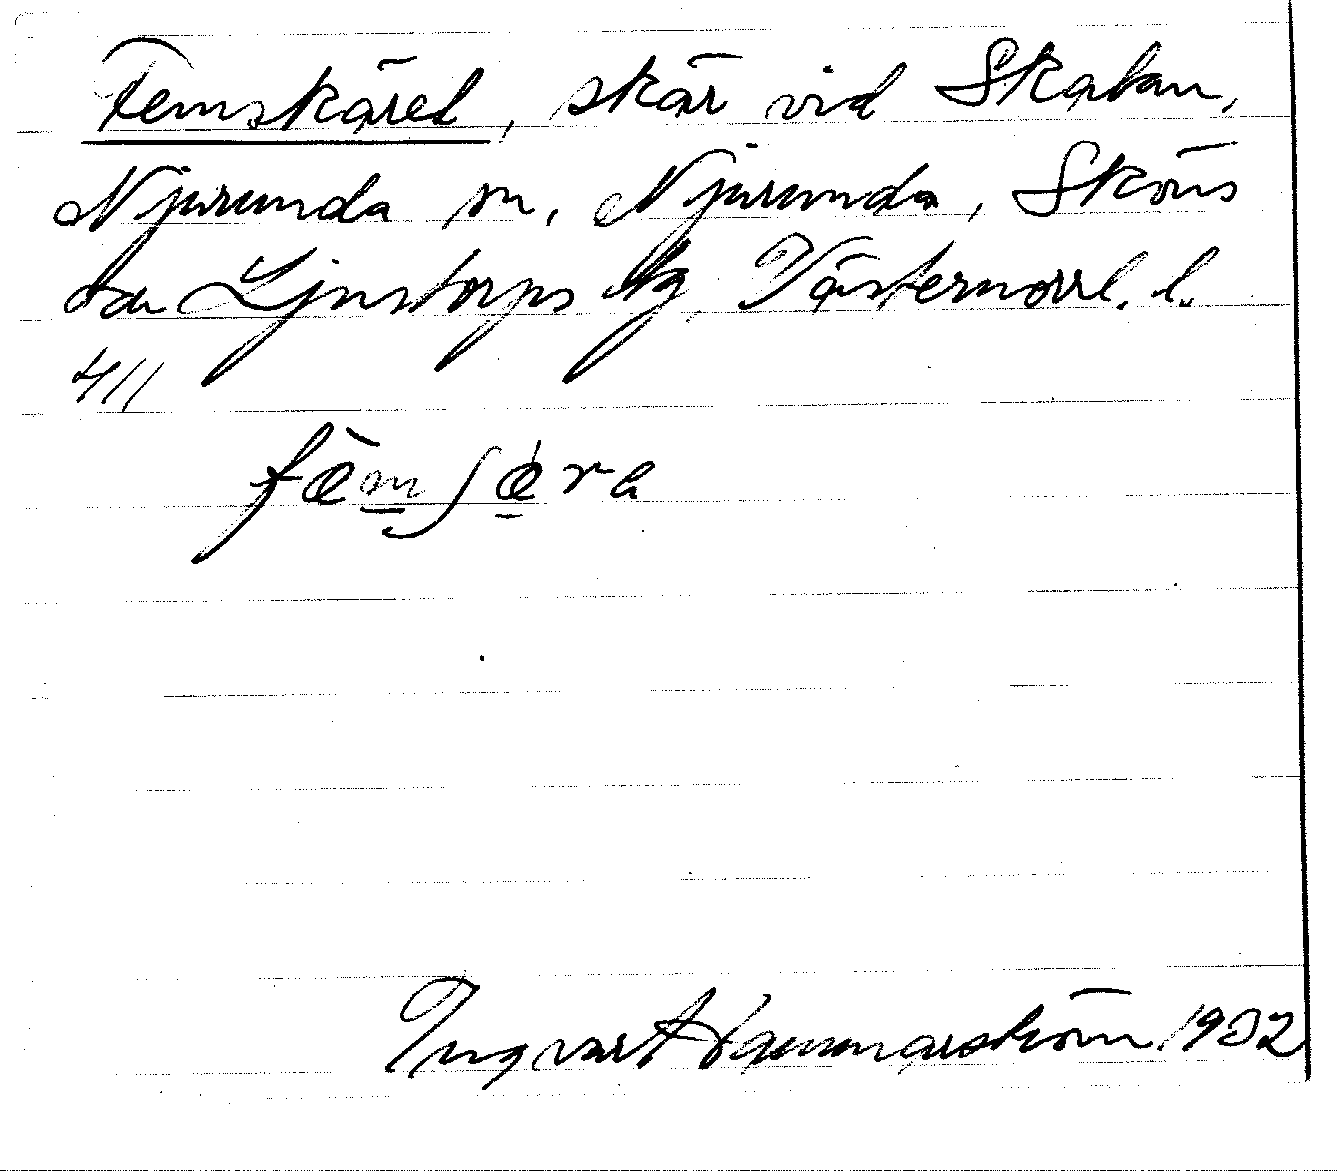 Femskäret, skär vid Skatan,
Njurunda sn, Njurunda, Sköns
och Ljustorps tg, Västernorrl. l.
4/11
fæ̀mʃǽ̣ra
Ingvar Hammarström 1932